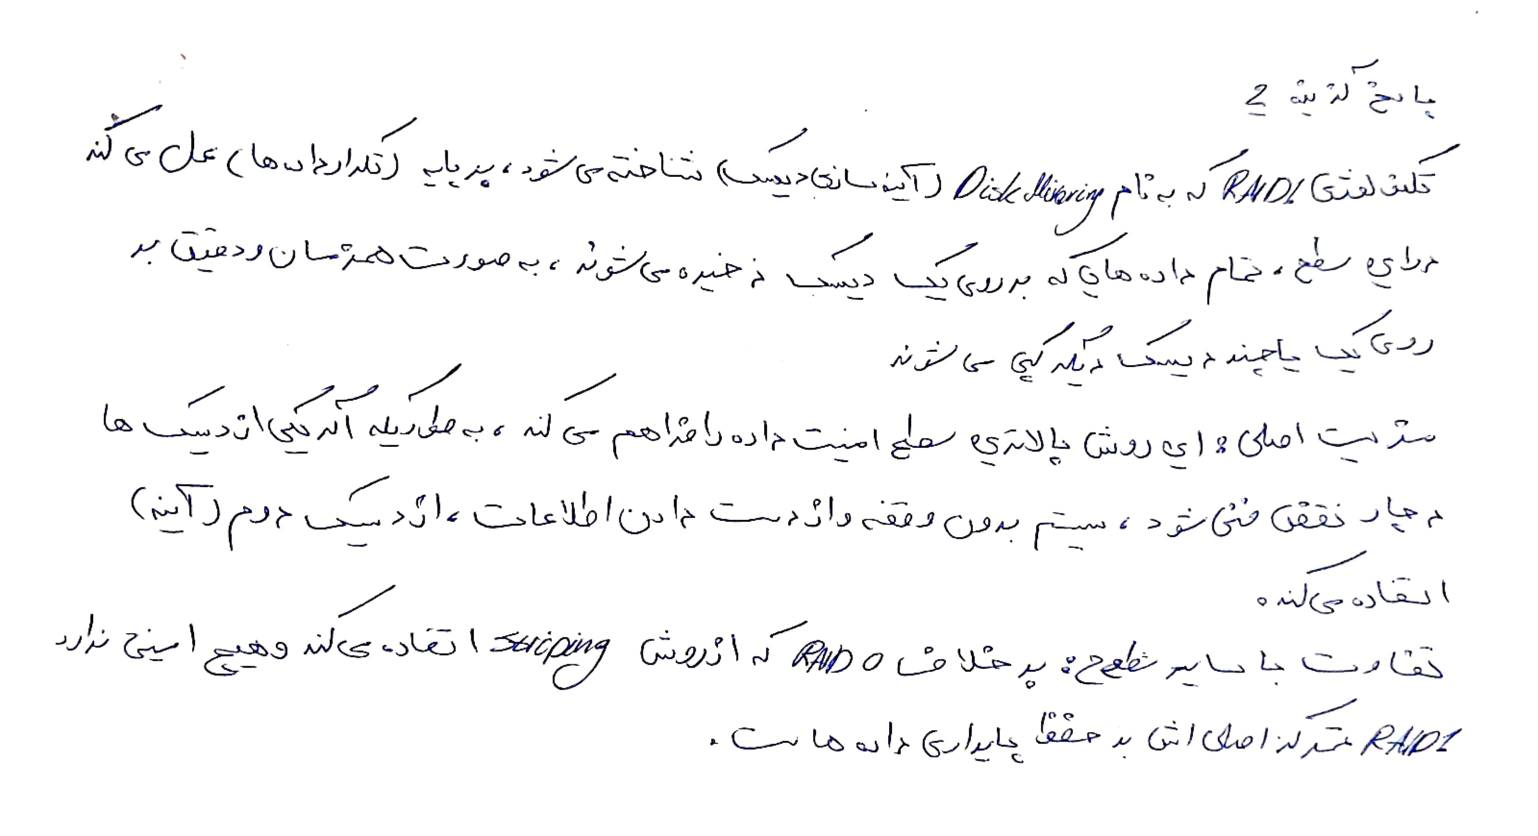 پاسخ گزینه 2
تکنولوژی RAID1 که به نام Disk Mirroring (آینه سازی دیسک) شناخته می شود، بر پایه (تکرار داده ها) عمل می کند
در این سطح، تمام داده هایی که بر روی یک دیسک ذخیره می شوند، به صورت همزمان و دقیق بر
روی یک یا چند دیسک دیگر کپی می شوند
مزیت اصلی: این روش بالاترین سطح امنیت داده را فراهم می کند، به طوریکه اگر یکی از دیسک ها
دچار نقص فنی شود، سیستم بدون وقفه و از دست دادن اطلاعات، از دیسک دوم (آینه)
استفاده می کند.
تفاوت با سایر سطوح: بر خلاف RAID 0 که از روش Striping استفاده می کند و هیچ امنیتی ندارد
RAID1 تمرکز اصلی اش بر حفظ پایداری داده هاست.